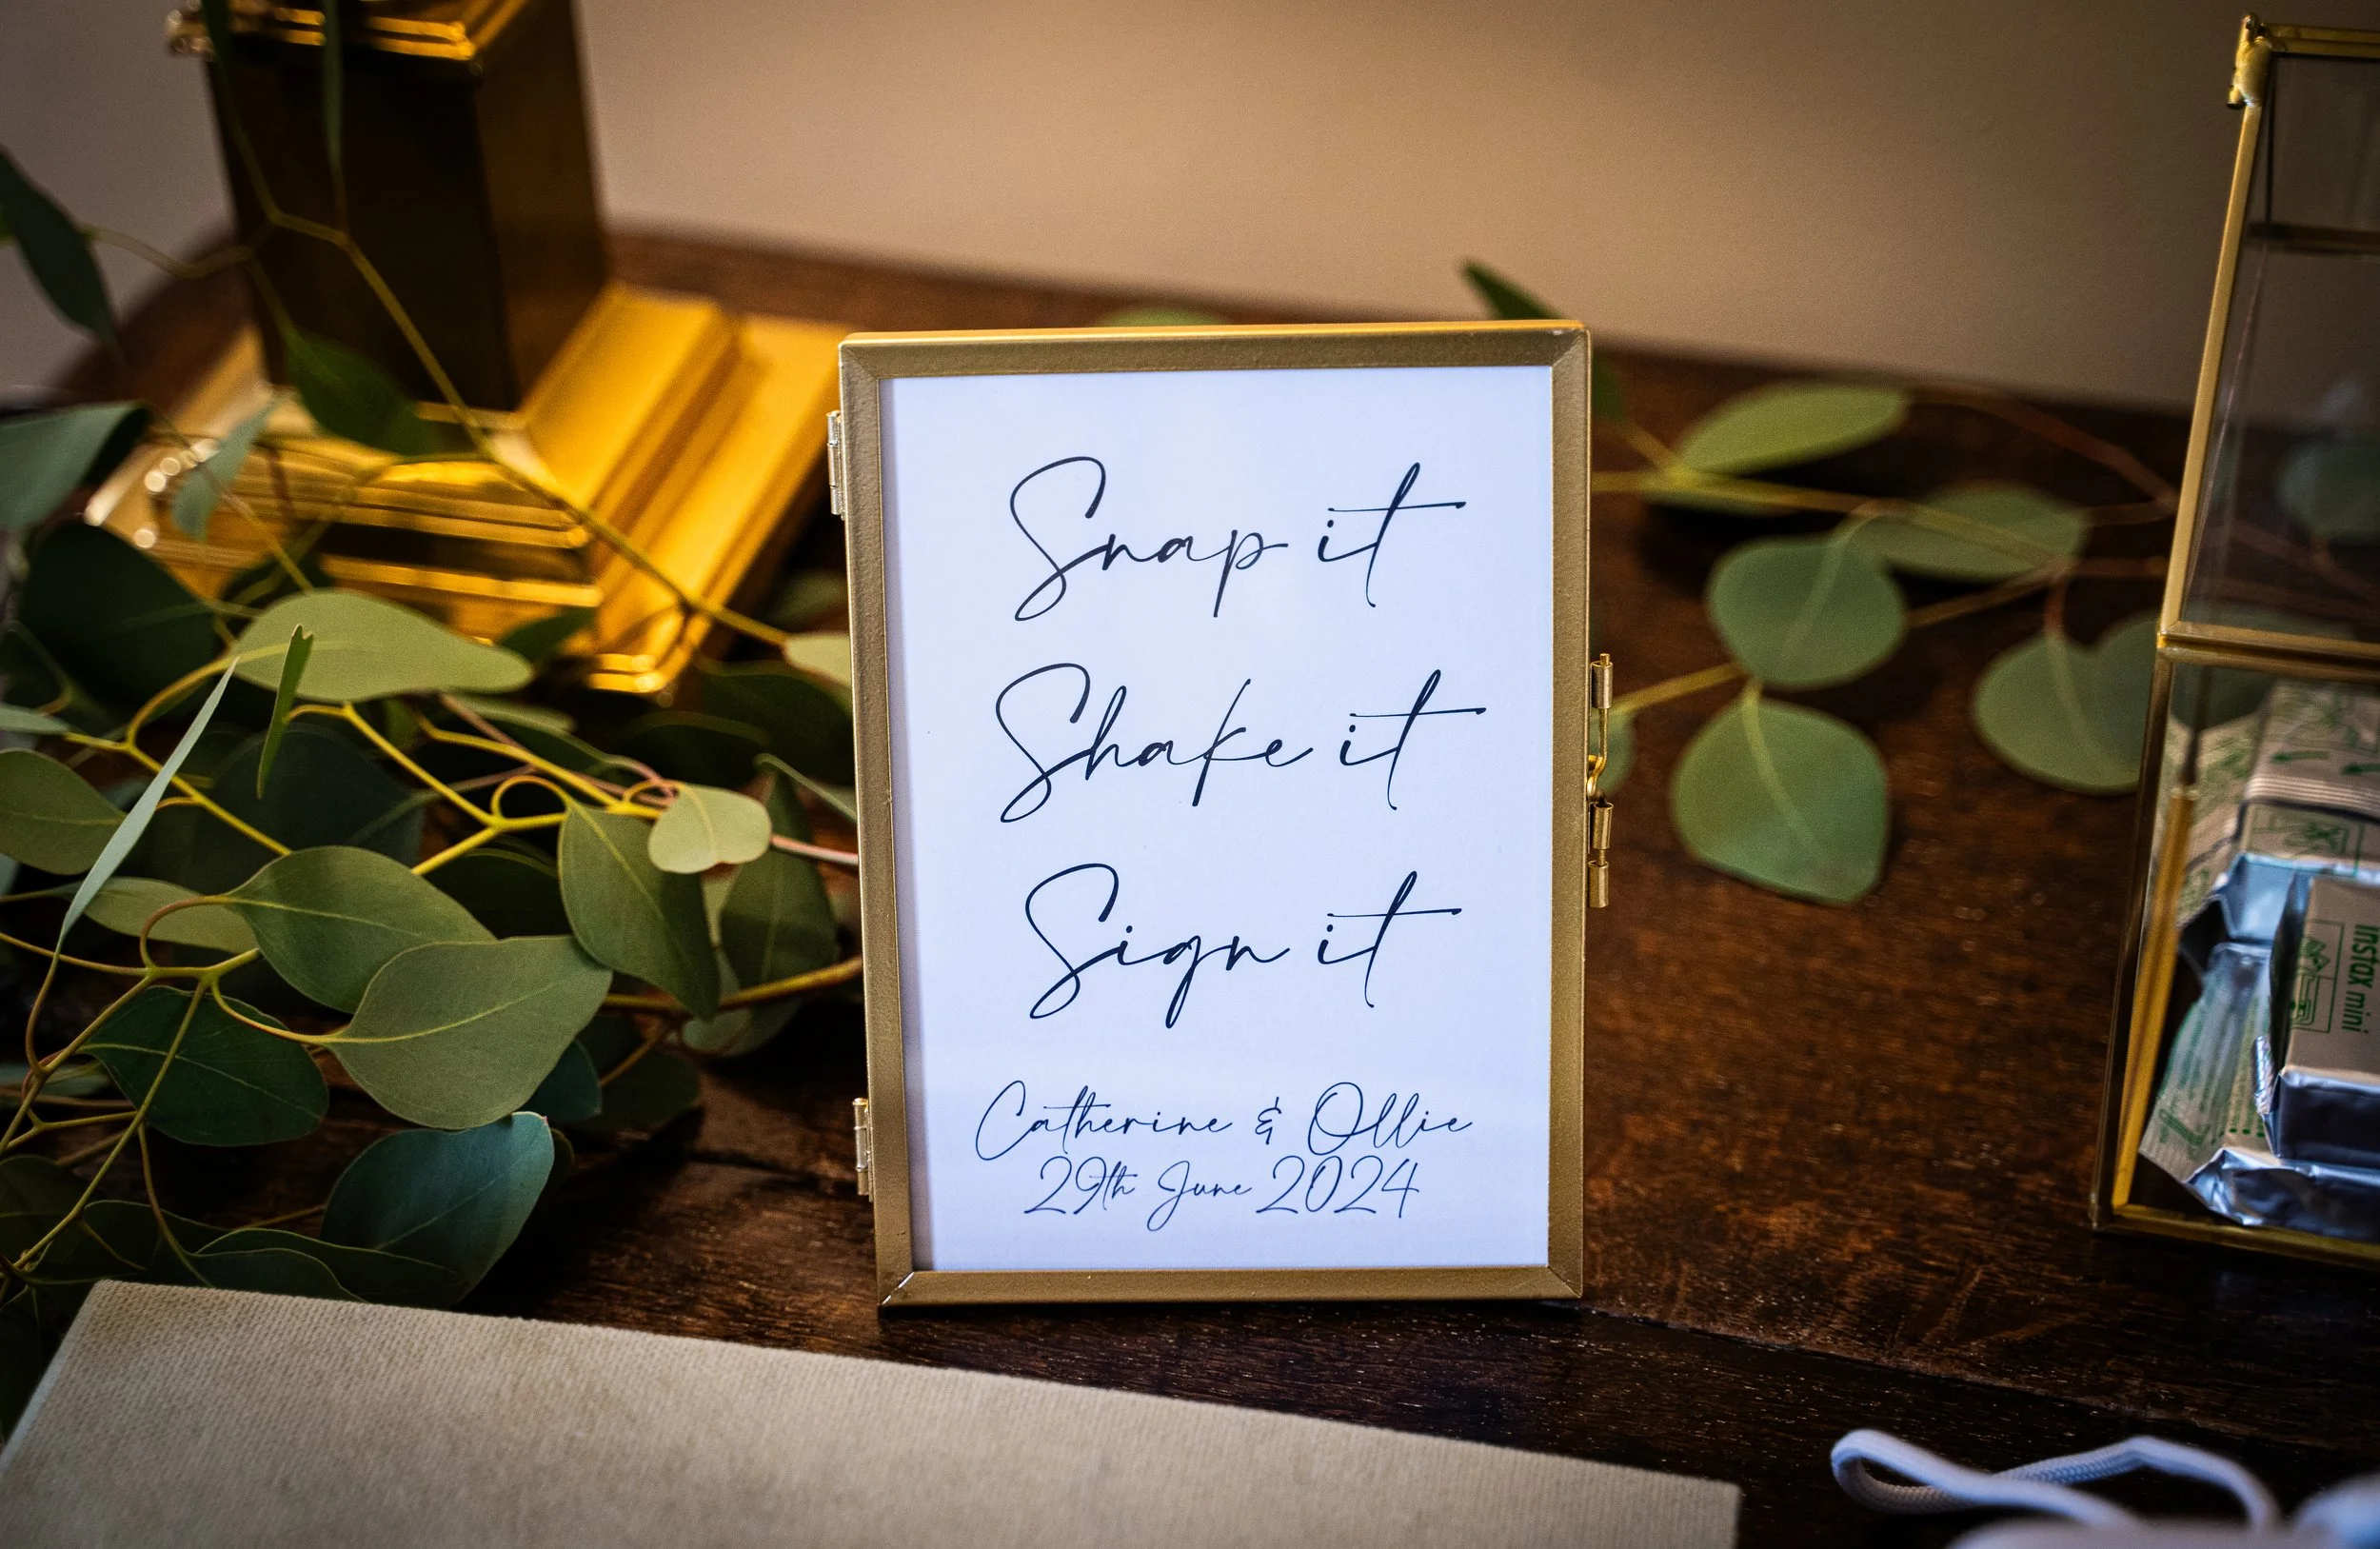 Snap it
Shake it
Sign it
Catherine & Ollie
29th June 2024
instax mini